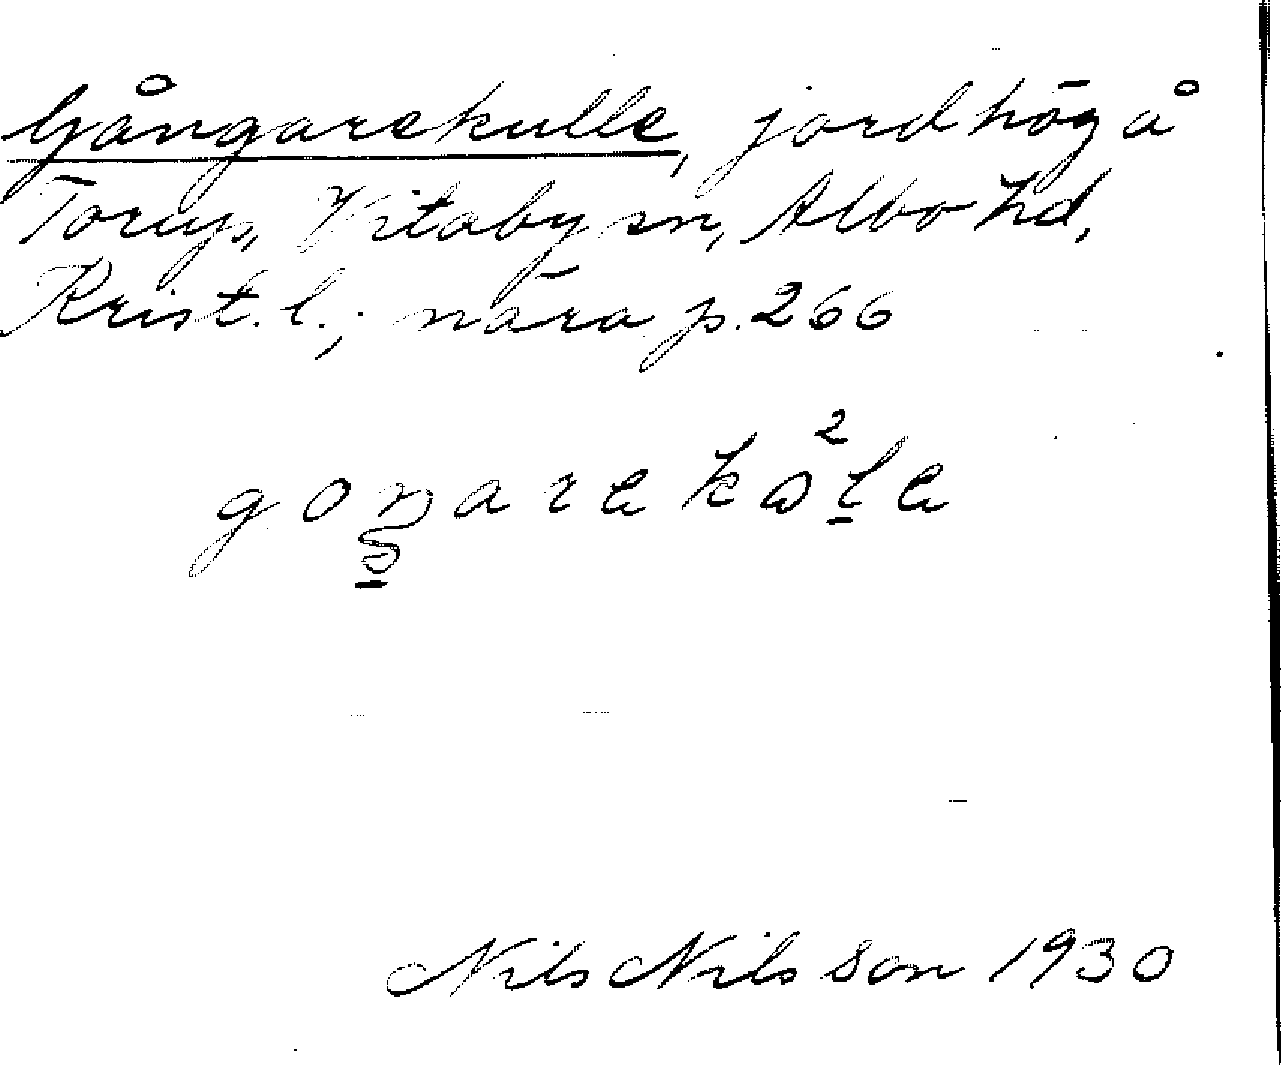 Gångarekulle, jordhög å
Torup, Vitaby sn, Albo hd,
Krist. l.; nära p. 266
goŋarekω²lε
Nils Nilsson 1930